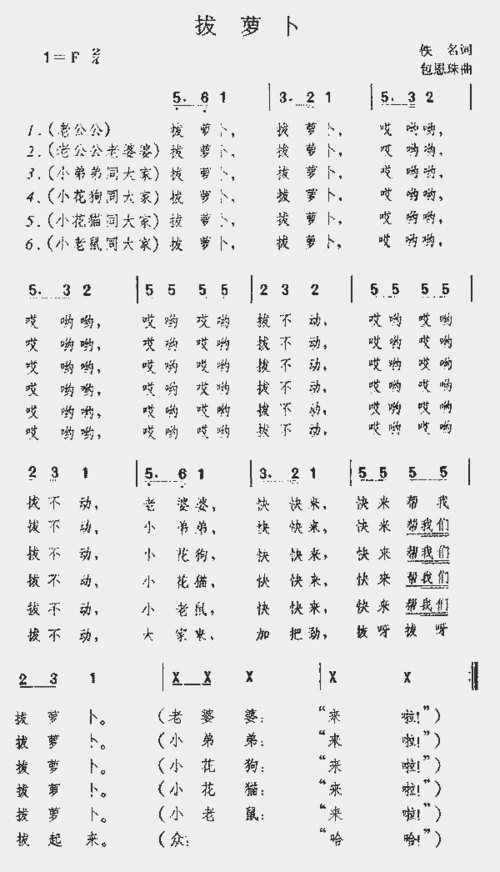 拔 萝 卜
1=F 2/4
佚 名词
包恩珠曲
5. 6 1 | 3. 2 1 | 5. 3 2 |
1.(老公公) 拔 萝 卜, 拔 萝 卜, 哎 哟哟,
2.(老公公老婆婆) 拔 萝 卜, 拔 萝 卜, 哎 哟哟,
3.(小弟弟同大家) 拔 萝 卜, 拔 萝 卜, 哎 哟哟,
4.(小花狗同大家) 拔 萝 卜, 拔 萝 卜, 哎 哟哟,
5.(小花猫同大家) 拔 萝 卜, 拔 萝 卜, 哎 哟哟,
6.(小老鼠同大家) 拔 萝 卜, 拔 萝 卜, 哎 哟哟,
5. 3 2 | 5 5 5 5 | 2 3 2 | 5 5 5 5 |
哎 哟哟, 哎哟 哎哟 拔不动, 哎哟 哎哟
哎 哟哟, 哎哟 哎哟 拔不动, 哎哟 哎哟
哎 哟哟, 哎哟 哎哟 拔不动, 哎哟 哎哟
哎 哟哟, 哎哟 哎哟 拔不动, 哎哟 哎哟
哎 哟哟, 哎哟 哎哟 拔不动, 哎哟 哎哟
哎 哟哟, 哎哟 哎哟 拔不动, 哎哟 哎哟
2 3 1 | 5. 6 1 | 3. 2 1 | 5 5 5 5 |
拔不动, 老 婆婆, 快 快来, 快来 帮我
拔不动, 小 弟弟, 快 快来, 快来 帮我们
拔不动, 小 花狗, 快 快来, 快来 帮我们
拔不动, 小 花猫, 快 快来, 快来 帮我们
拔不动, 小 老鼠, 快 快来, 快来 帮我们
拔不动, 大 家来, 加 把劲, 拔呀 拔呀
2 3 1 | X X X | X X :‖
拔萝卜。 (老婆婆: “来 啦!”)
拔萝卜。 (小弟弟: “来 啦!”)
拔萝卜。 (小花狗: “来 啦!”)
拔萝卜。 (小花猫: “来 啦!”)
拔萝卜。 (小老鼠: “来 啦!”)
拔起来。 (众: “哈 哈!”)